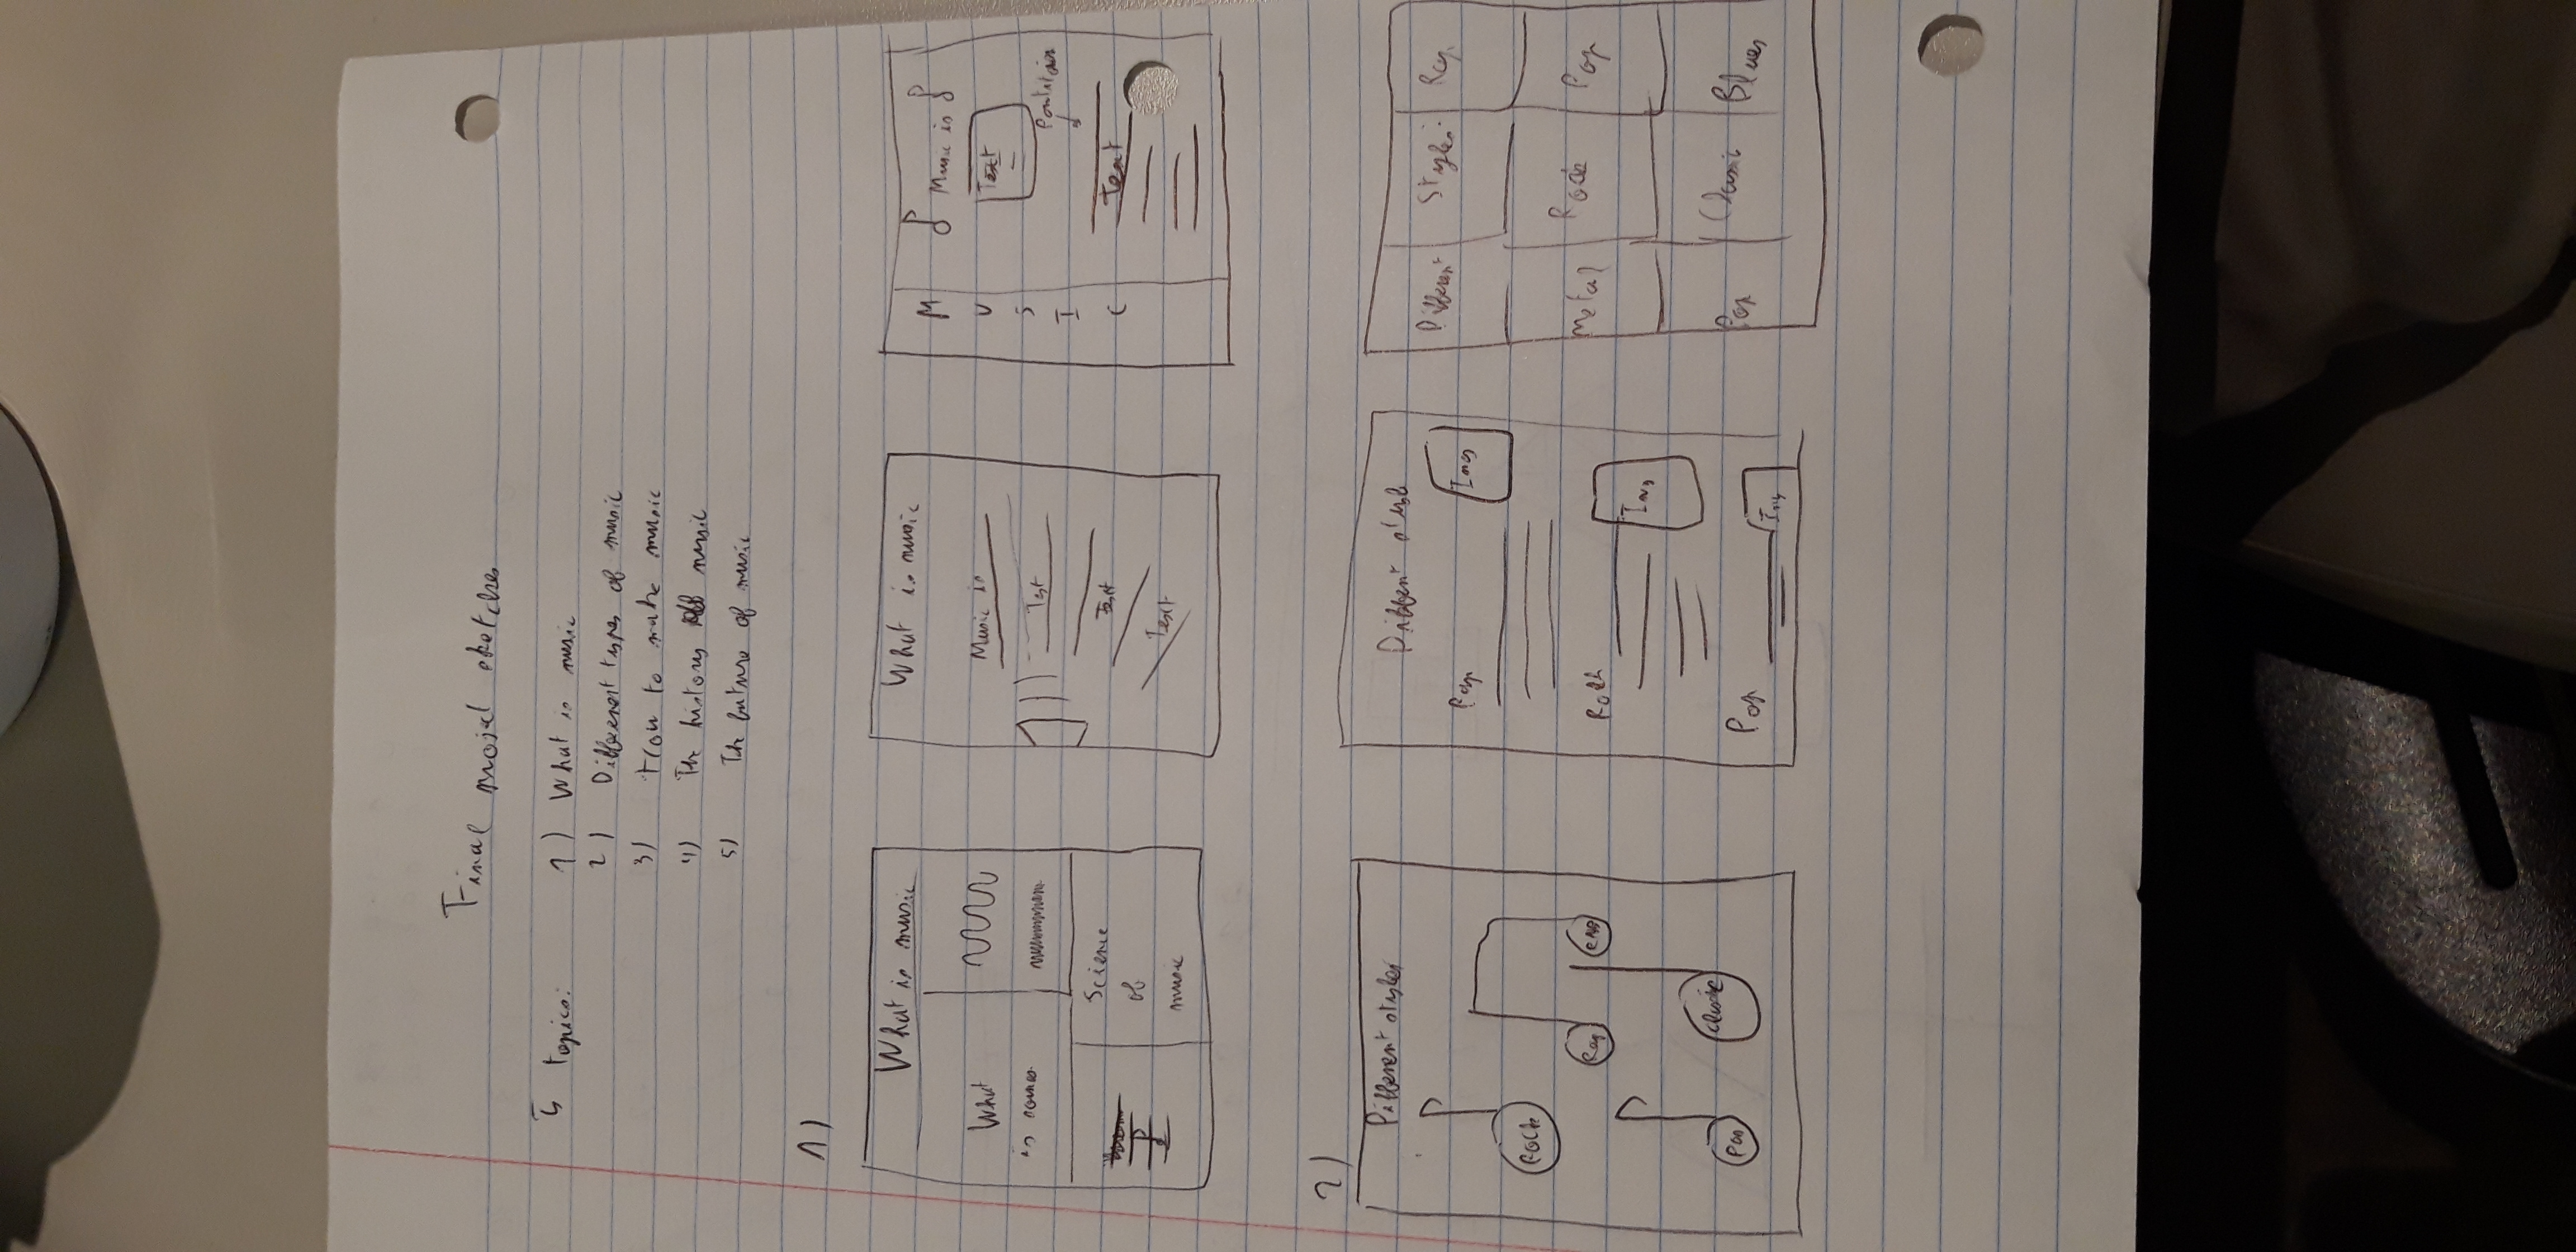 Final project sketches
5 topics: 1) What is music
2) Different types of music
3) How to make music
4) The history of music
5) The future of music
1)
What is music
What
is
Science
of
music
What is music
Music is
Text
Text
Text
M
U
S
I
C
Music is
Text
Text
2)
Different styles
Rock
Rap
RNB
Pop
Classic
Different style
Pop
Img
Rock
Img
Pop
Img
Different Styles Rap
Metal Rock Pop
Pop Classic Blues